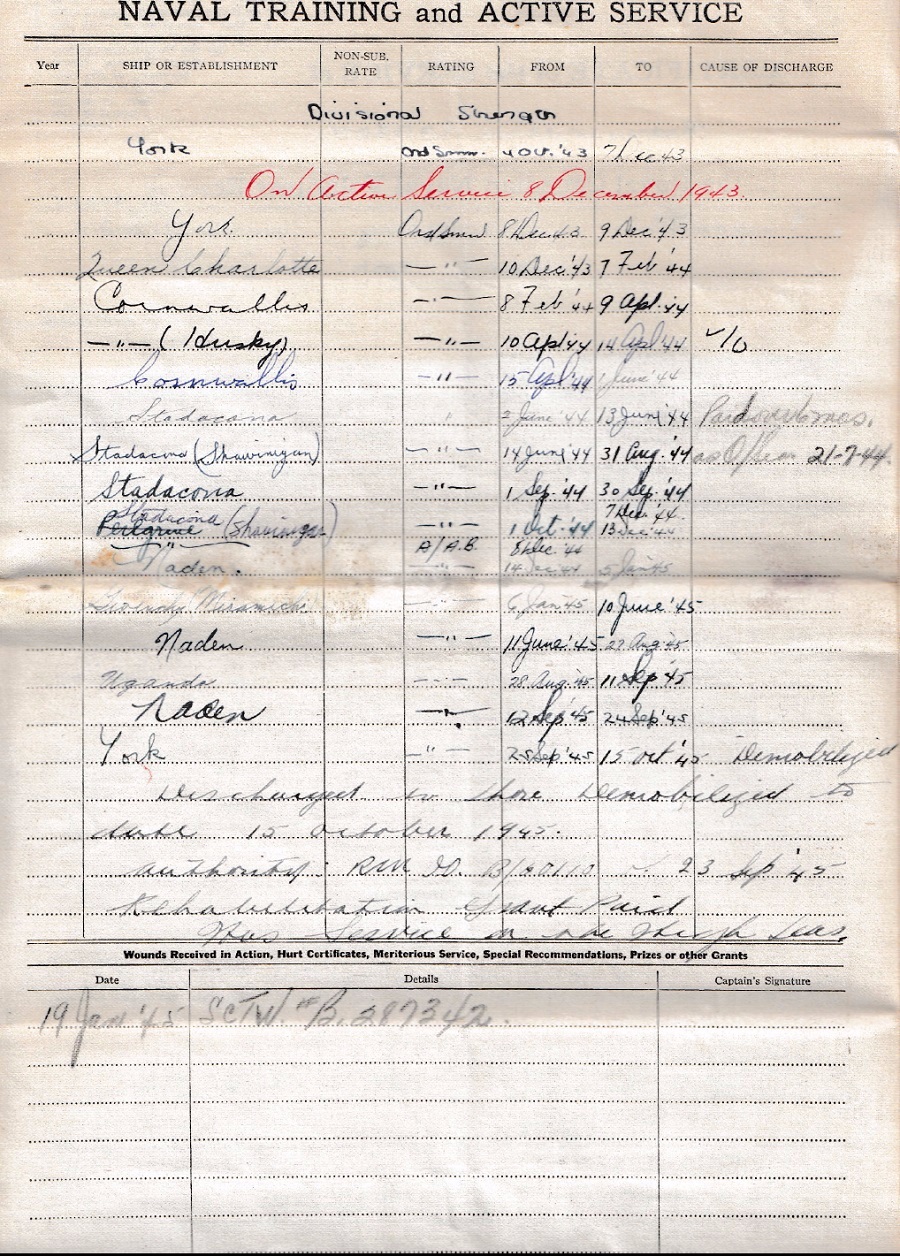 NAVAL TRAINING and ACTIVE SERVICE
Year SHIP OR ESTABLISHMENT NON-SUB. RATE RATING FROM TO CAUSE OF DISCHARGE
Divisional Strength
York Ord Smn. Nov. '43 7 Dec 43
On Active Service 8 December 1943.
York. Ord Smn 8 Dec 43 9 Dec '43
Queen Charlotte —"— 10 Dec '43 7 Feb '44
Cornwallis —"— 8 Feb '44 9 Apl. '44
—"— (Husky) —"— 10 Apl '44 14 Apl '44
Cornwallis —"— 15 Apl '44 1 June '44
Stadacona " 2 June '44 13 June '44 Paid
Stadacona (Shawinigan) —"— 14 June '44 31 Aug. '44 as O/Sea 21-7-44.
Stadacona —"— 1 Sep. '44 30 Sep. '44
Stadacona 7 Dec. '44
Peregrine (Shawinigan) —"— 1 Oct. '44 13 Dec '44
—"— A/A.B. 8 Dec '44
Naden. —"— 14 Dec '44 5 Jan 45
Miramichi —"— 6 Jan '45 10 June '45
Naden —"— 11 June '45 27 Aug '45
Uganda —"— 28 Aug. '45 11 Sep '45
Naden —"— 12 Sep '45 24 Sep '45
York —"— 25 Sep '45 15 Oct '45 Demobilized
Discharged to shore Demobilized to
date 15 October 1945.
Authority: 23 Sep '45
Rehabilitation Grant Paid
Has Service on the High Seas.
Wounds Received in Action, Hurt Certificates, Meritorious Service, Special Recommendations, Prizes or other Grants
Date Details Captain's Signature
19 Jan '45 B. 287342.